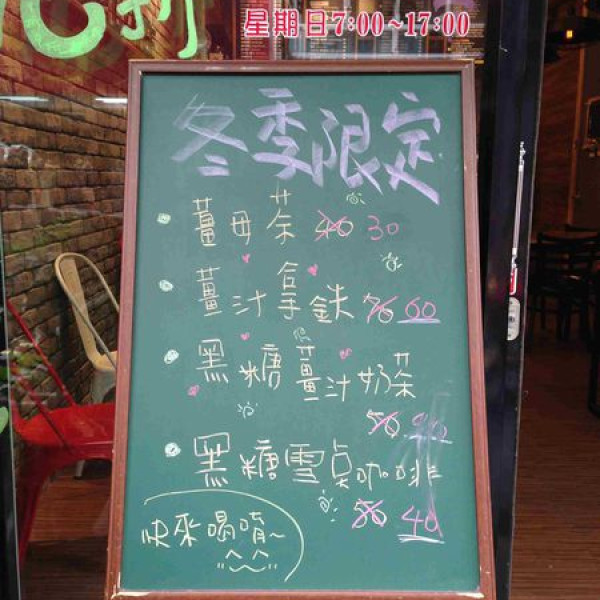 星期日7:00~17:00
冬季限定
薑母茶 40 30
薑汁拿鐵 70 60
黑糖薑汁奶茶
50 40
黑糖雪貞咖啡
50 40
快來喝唷~